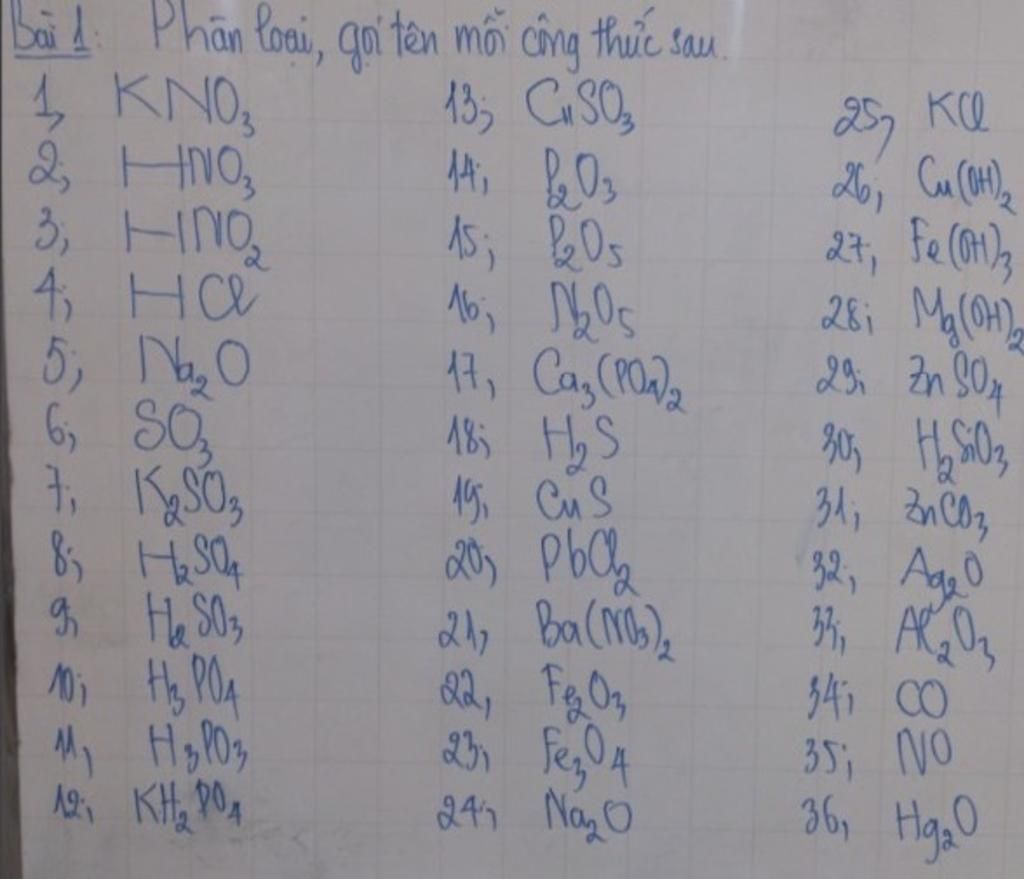 Bài 1: Phân loại, gọi tên mỗi công thức sau.
1, KNO3
2; HNO3
3; HNO2
4; HCl
5; Na2O
6; SO3
7; K2SO3
8; H2SO4
9, H2SO3
10; H3PO4
11, H3PO3
12; KH2PO4
13; CuSO3
14; P2O3
15; P2O5
16; N2O5
17, Ca3(PO4)2
18; H2S
19; CuS
20; PbCl2
21, Ba(NO3)2
22, Fe2O3
23; Fe3O4
24; Na2O
25, KCl
26; Cu(OH)2
27; Fe(OH)3
28; Mg(OH)2
29; ZnSO4
30; H2SiO3
31; ZnCO3
32, Ag2O
33, Al2O3
34; CO
35; NO
36, Hg2O